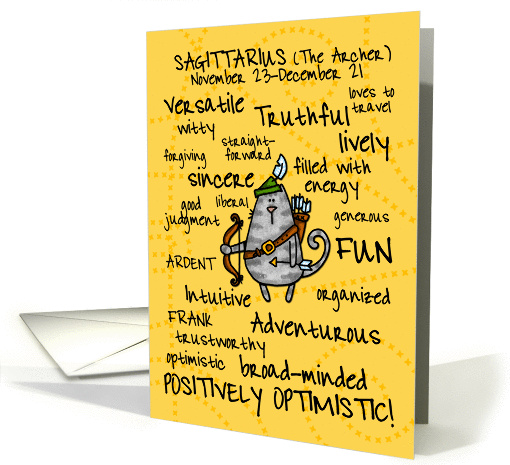 SAGITTARIUS (The Archer)
November 23-December 21
versatile
loves to
travel
witty
Truthful
lively
forgiving
straight-
forward
sincere
filled with
energy
good
judgment
liberal
generous
FUN
ARDENT
Intuitive
organized
FRANK
Adventurous
trustworthy
optimistic
broad-minded
POSITIVELY OPTIMISTIC!